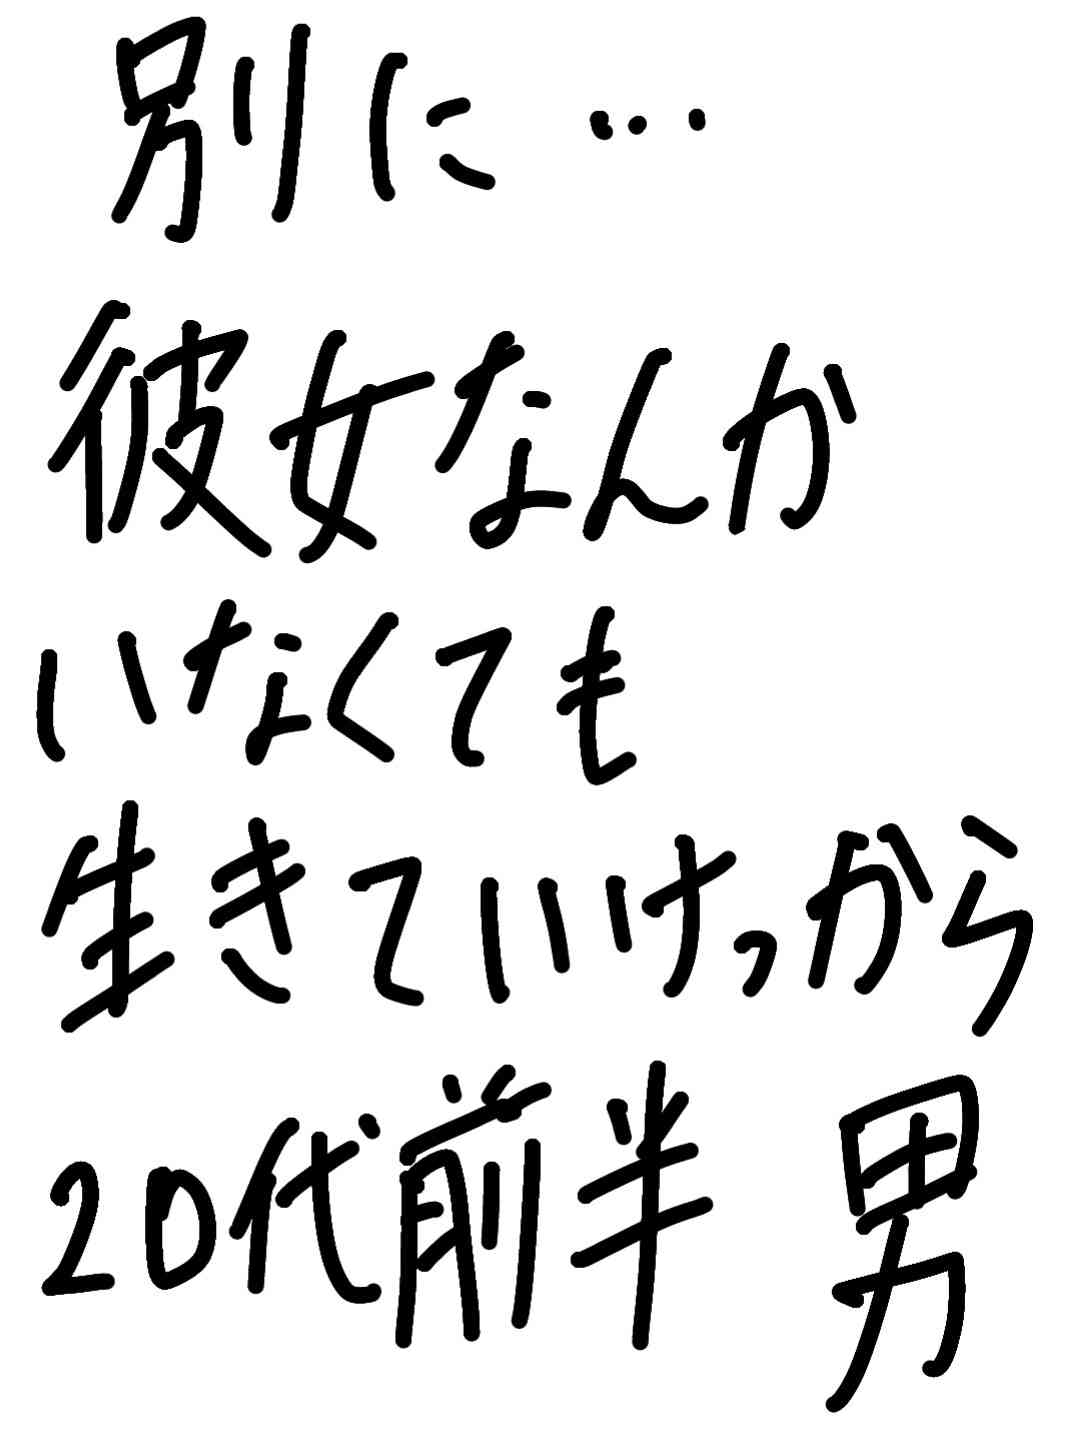 別に…
彼女なんか
いなくても
生きていけっから
20代前半 男